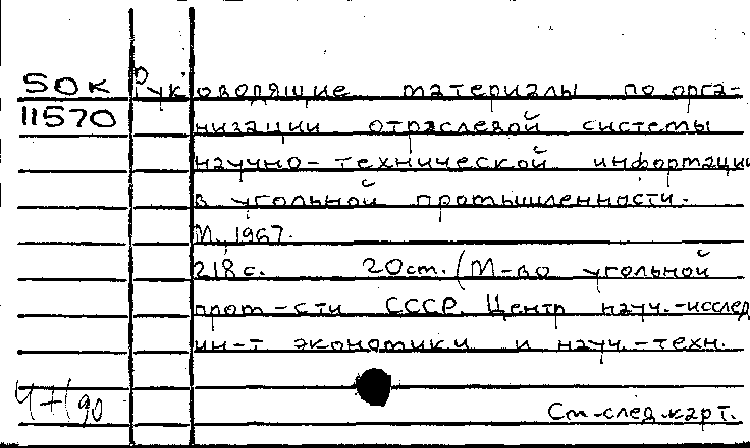 50к Руководящие материалы по орга-
11570 низации отраслевой системы
научно-технической информации
в угольной промышленности.
М., 1967.
218 с. 20см. (М-во угольной
пром-сти СССР. Центр науч.-исслед
ин-т экономики и науч.-техн.
См.след.карт.